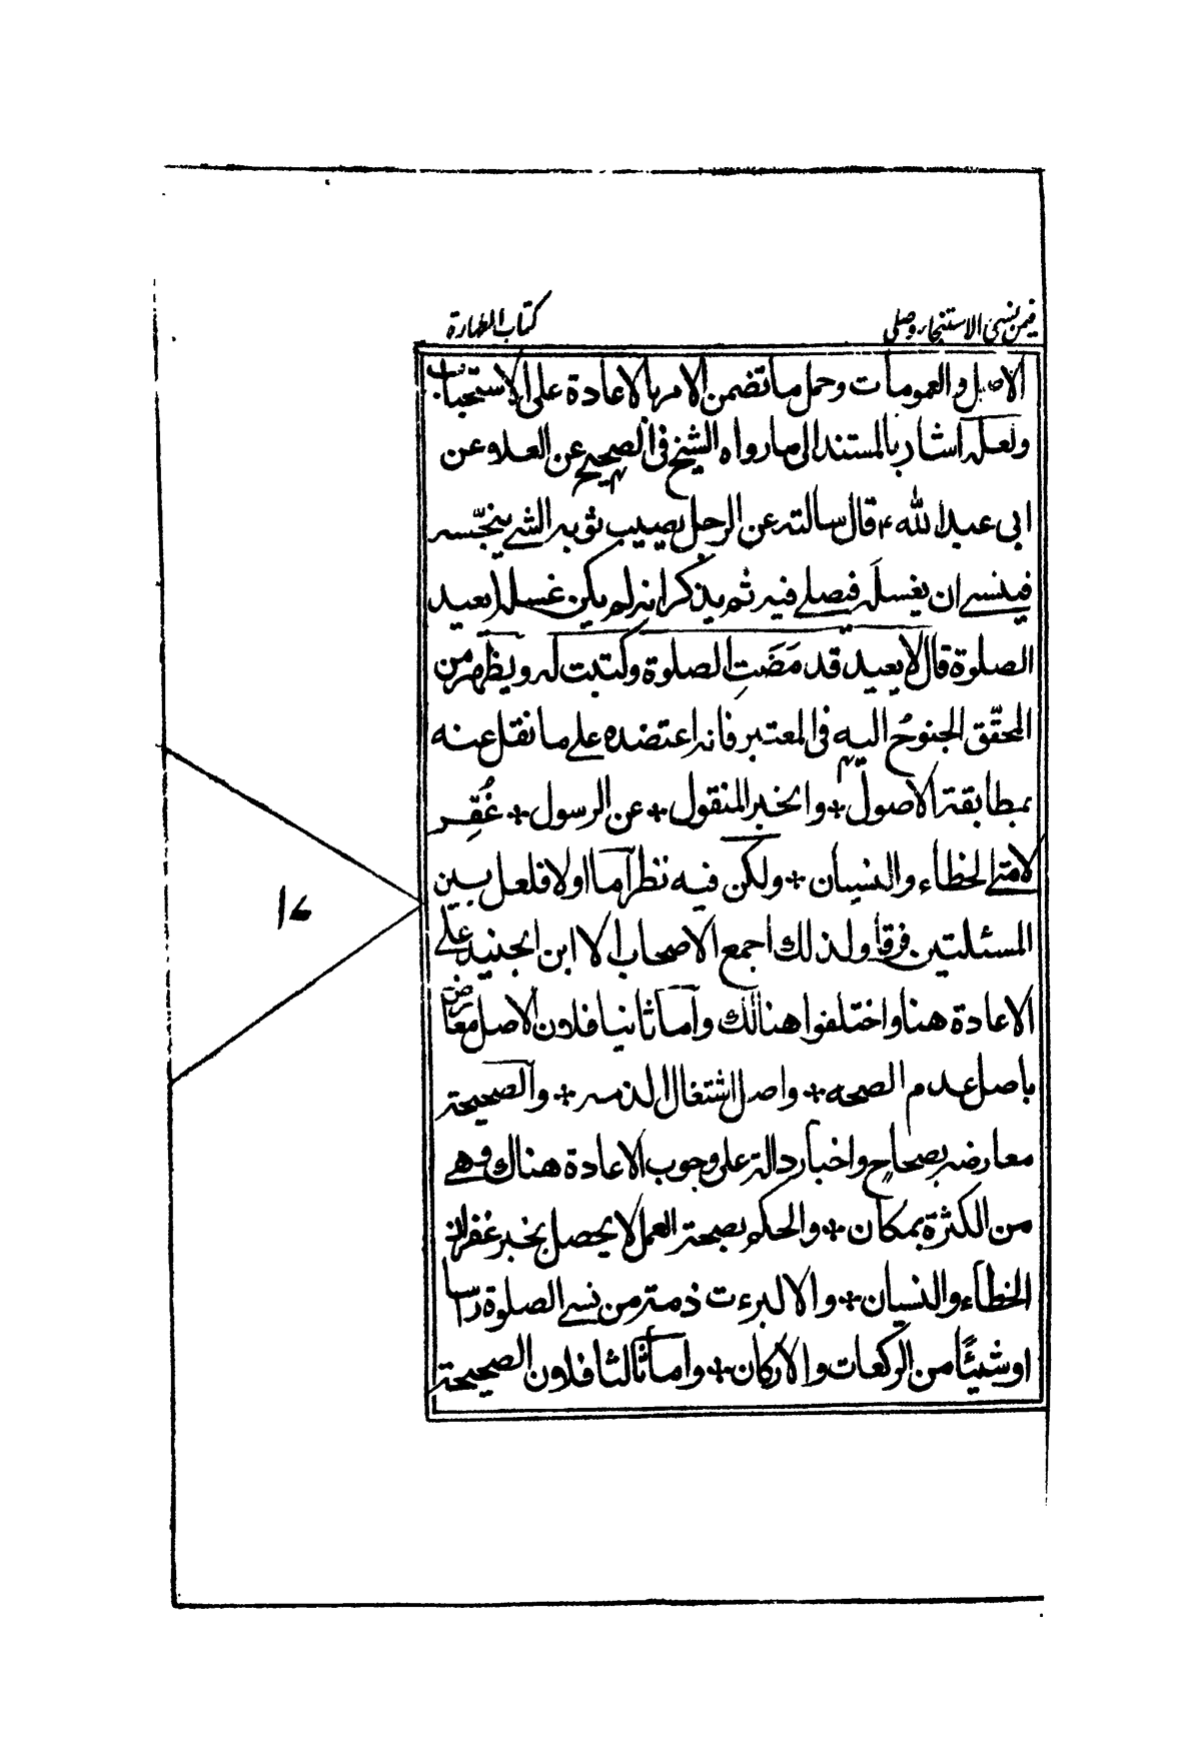 فيمن نسى الاستنجاء وصلى
كتاب الطهارة
الاصل والعمومات وحمل ما تضمن الامر بالاعادة على الاستحباب
ولعله اشار بالمستند الى ما رواه الشيخ فى الصحيح عن العلا عن
ابى عبد الله ع قال سالته عن الرجل يصيب ثوبه الشئ ينجّسه
فينسى ان يغسله فيصلى فيه ثم يذكر انه لم يكن غسله ايعيد
الصلوة قال لا يعيد قد مَضَتِ الصلوة وكتبت له ويظهر من
المحقّق الجنوحُ اليه فى المعتبر فانه اعتضده على ما نقل عنه
بمطابقة الاصول + والخبر المنقول + عن الرسول + غُفِر
لامتى الخطاء والنسيان + ولكن فيه نظر اما اولا فلعل بين
المسئلتين فرقا ولذلك اجمع الاصحاب الا ابن الجنيد على
الاعادة هنا واختلفوا هنالك واما ثانيا فلان الاصل معارض
باصل عدم الصحه + واصل اشتغال الذمه + والصحيحة
معارضه بصحاح واخبار دالة على وجوب الاعادة هناك وهى
من الكثرة بمكان + والحكم بصحة العمل لا يحصل بخبر غفران
الخطاء والنسيان + والا لبرءت ذمة من نسى الصلوة راسا
او شيئًا من الركعات والاركان + واما ثالثا فلان الصحيحة